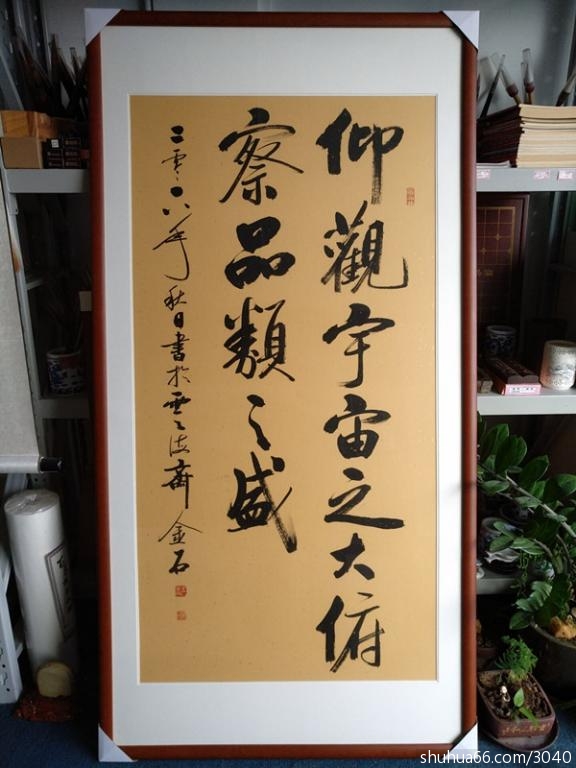 仰觀宇宙之大俯
察品類之盛
二零一八年秋日書於雲海齋金石
shuhua66.com/3040